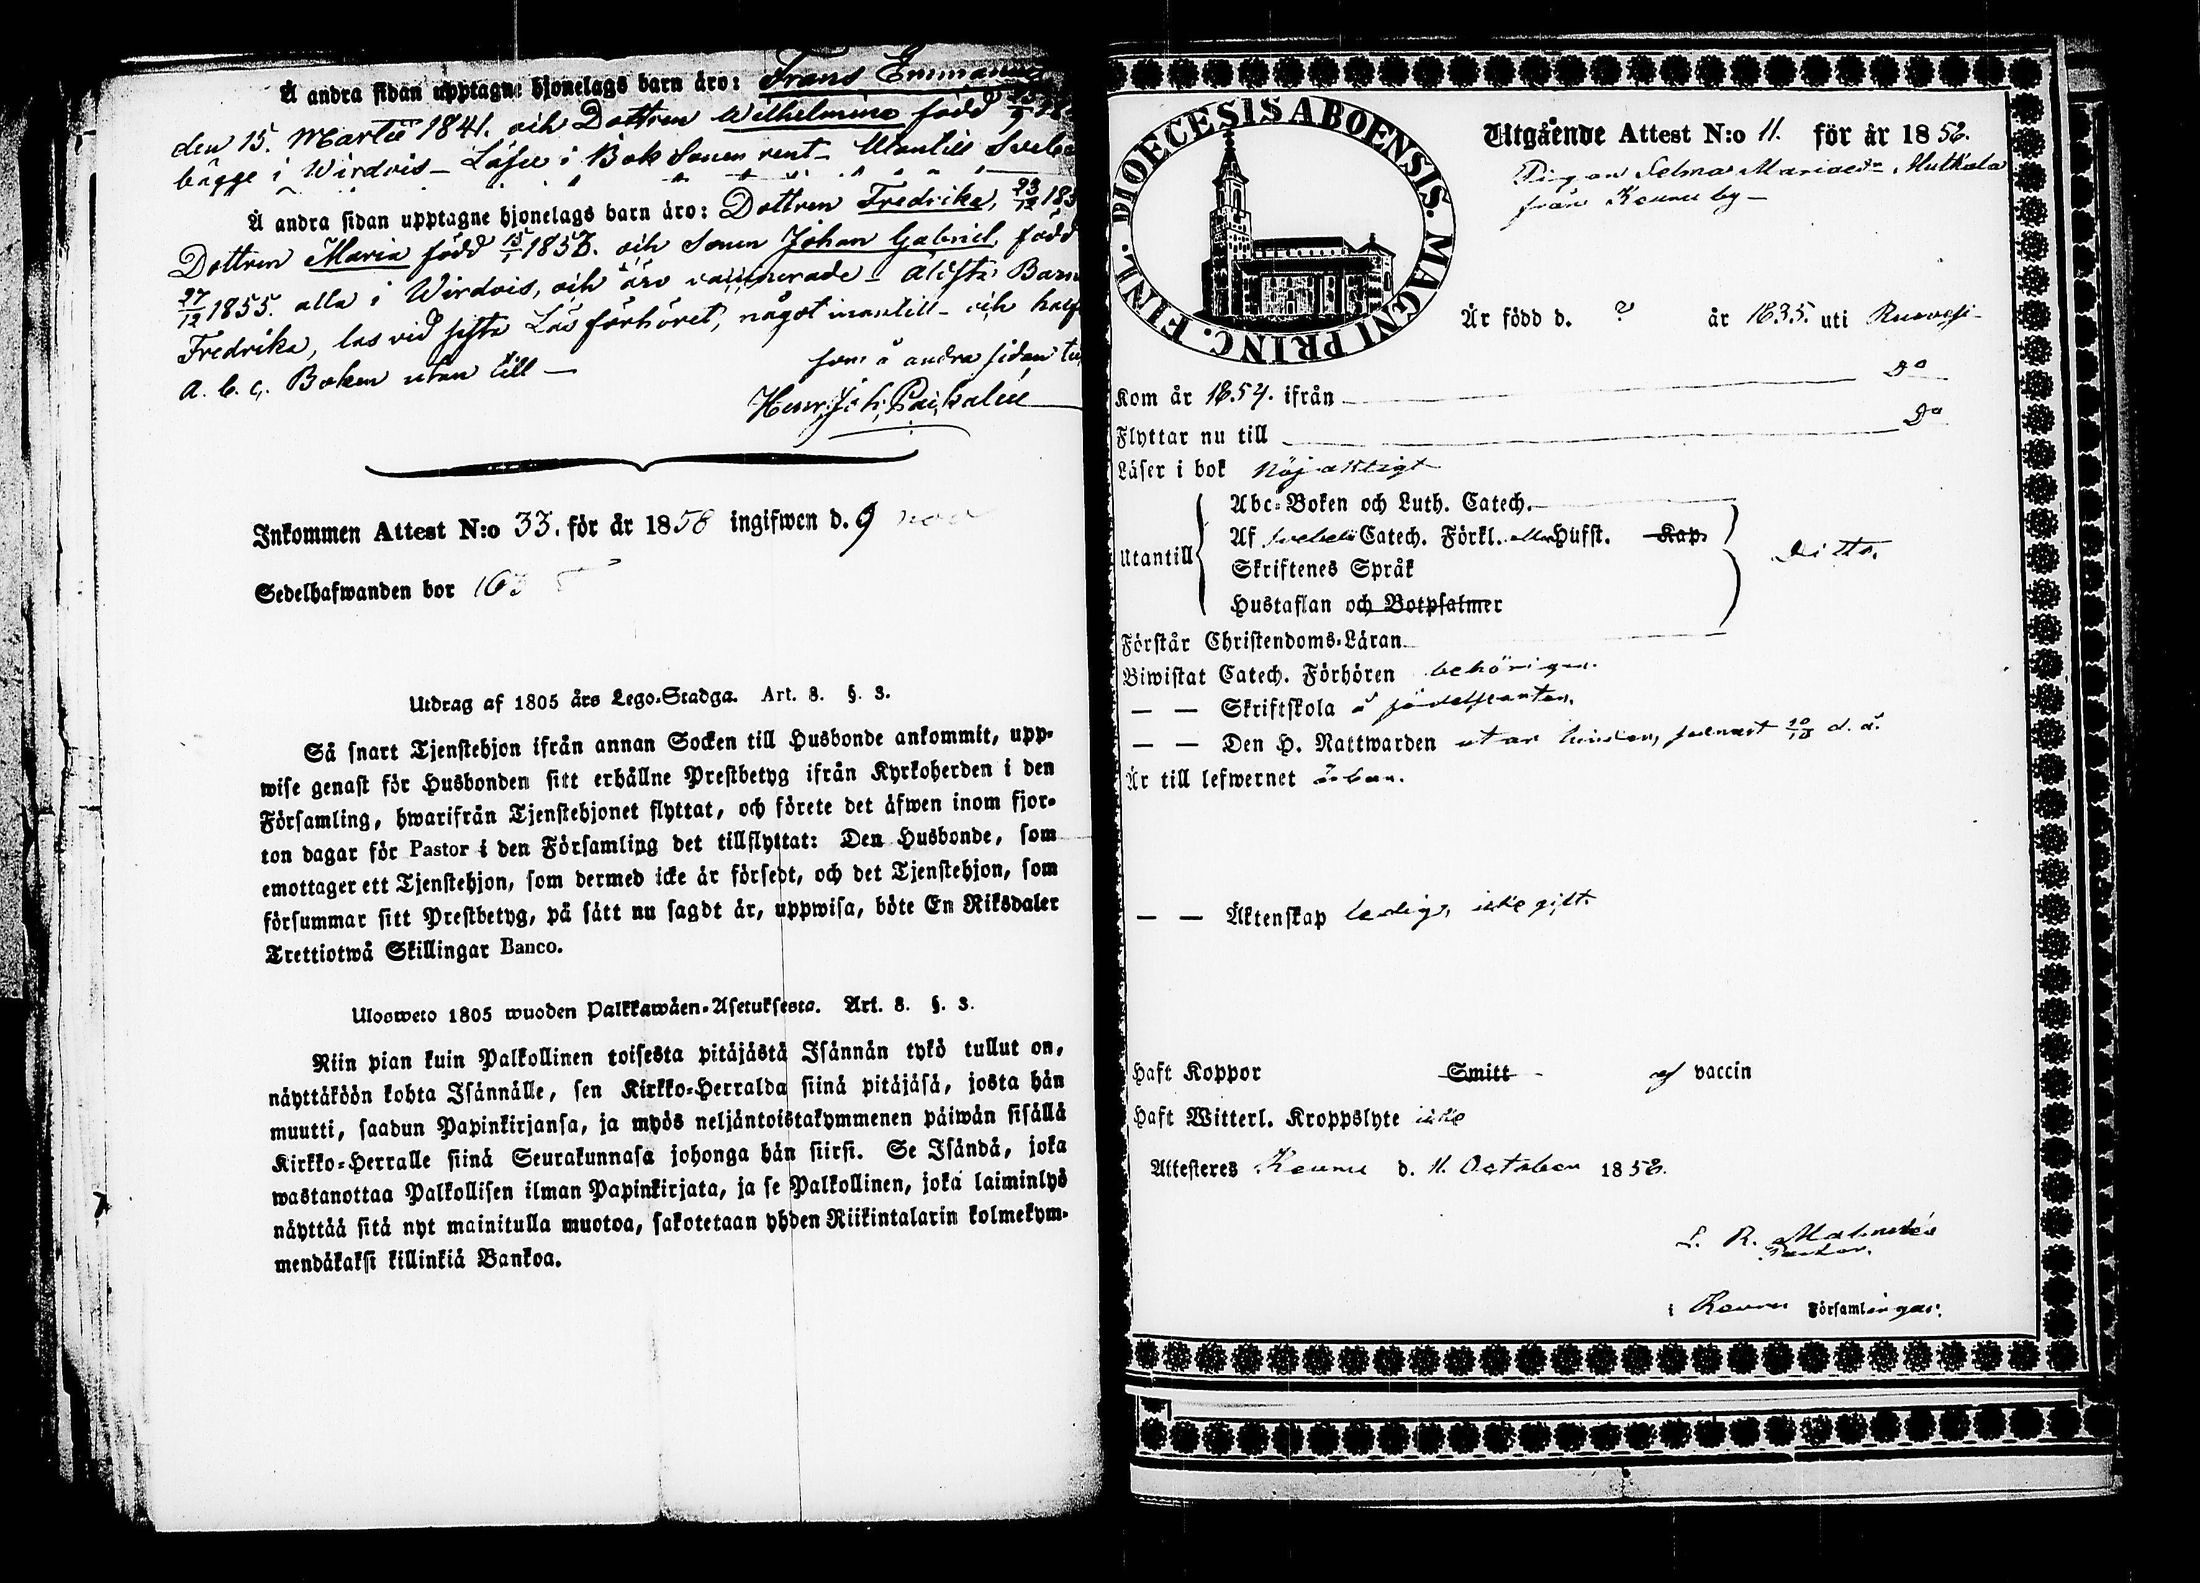 Å andra sidan upptagne hjonelags barn äro: Frans Emmanuel
den 15. Martii 1841. och Dottren Wilhelmina född
bägge i Wirdois – Läser i Bok Sonen rent – Utantill Svebe
Å andra sidan upptagne hjonelags barn äro: Dottren Fredrika, 23/12 185
Dottren Maria född 15/1 1853. och Sonen Johan Gabriel, född
27/12 1855. alla i Wirdois, och äro vaccinerade – äldsta Barn
Fredrika, las vid sista Läsförhöret, något innantill – och half
a. b. c. Boken utan till —
som å andra sidan
Henr. Joh.
Inkommen Attest N:o 33. för år 1858 ingifwen d. 9 nov
Sedelhafwanden bor 163
Utdrag af 1805 års Lego-Stadga. Art. 8. §. 3.
Så snart Tjenstehjon ifrån annan Socken till Husbonde ankommit, upp-
wise genast för Husbonden sitt erhållne Prestbetyg ifrån Kyrkoherden i den
Församling, hwarifrån Tjenstehjonet flyttat, och förete det äfwen inom fjor-
ton dagar för Pastor i den Församling det tillflyttat: Den Husbonde, som
emottager ett Tjenstehjon, som dermed icke är försedt, och det Tjenstehjon, som
försummar sitt Prestbetyg, på sätt nu sagdt är, uppwisa, böte En Riksdaler
Trettiotwå Skillingar Banco.
Ulosweto 1805 wuoden Palkkawäen-Asetuksesta. Art. 8. §. 3.
Niin pian kuin Palkollinen toisesta pitäjästä Isännän tykö tullut on,
näyttäköön kohta Isännälle, sen Kirkko-Herralda siinä pitäjäsä, josta hän
muutti, saadun Papinkirjansa, ja myös neljäntoistakymmenen päiwän sisällä
Kirkko-Herralle siinä Seurakunnasa johonga hän siirsi. Se Isändä, joka
wastanottaa Palkollisen ilman Papinkirjata, ja se Palkollinen, joka laiminlyö
näyttää sitä nyt mainitulla muotoa, sakotetaan yhden Riikintalarin kolmekym-
mendäkaksi killinkiä Bankoa.
DIOECESIS ABOENSIS. MAGNI PRINC. FINL.
Utgående Attest N:o 11. för år 1858.
Pigan Selma Mariaed:r Mutkala
från Keuru by –
Är född d. ? år 1835. uti Ruovesi –
Kom år 1854. ifrån D:o
Flyttar nu till D:o
Läser i bok nöjaktigt
Utantill
Abc-Boken och Luth. Catech.
Af Svebelii Catech. Förkl. eller Hufst. Kap.
Skriftenes Språk
Hustaflan och Botpsalmer
Ditto.
Förstår Christendoms-Läran
Biwistat Catech. Förhören behörigen.
— — Skriftskola å födelseorten.
— — Den H. Nattwarden utan hinder, senast 10/10 d. å.
Är till lefwernet ärbar.
— — Äktenskap ledig, icke gift.
Haft Koppor Smitt – af vaccin
Haft Witterl. Kroppslyte icke
Attesteres Keuru d. 11. October 1858.
L. R. Malmstén
Pastor.
i Keuru Församlingar.